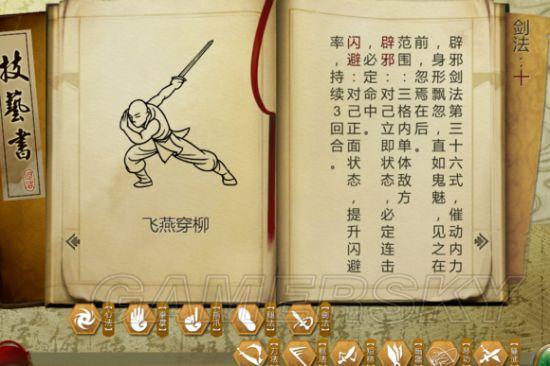 技藝書
飞燕穿柳
剑法：十
辟邪剑法第三十六式，催动内力
，身形飘忽，直如鬼魅，见之在
前，忽焉在后。
范围：三格内单体敌方
辟邪：对己立即状态，必定连击
，必定命中。
闪避：对己正面状态，提升闪避
率，持续3回合。
GAMERSKY
【心法】
【拳掌】
【指爪】
【腿法】
【剑法】
【刀法】
【棍法】
【短柄】